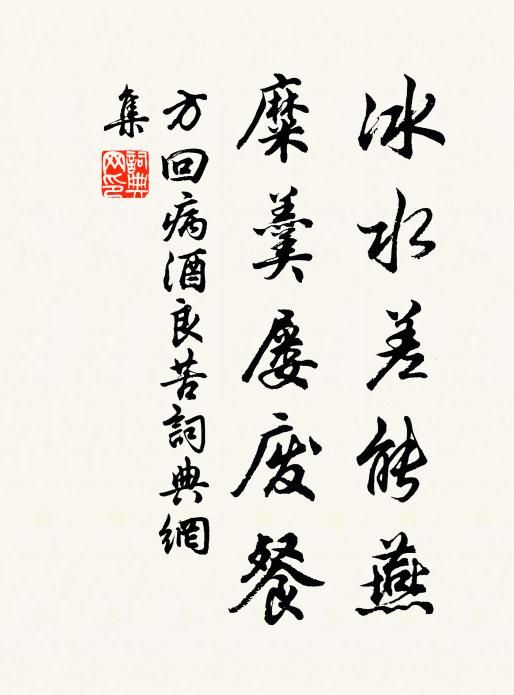 冰水差能燕
糜羹屡废餐
方回病酒良苦詞典網
集
詞典
网印